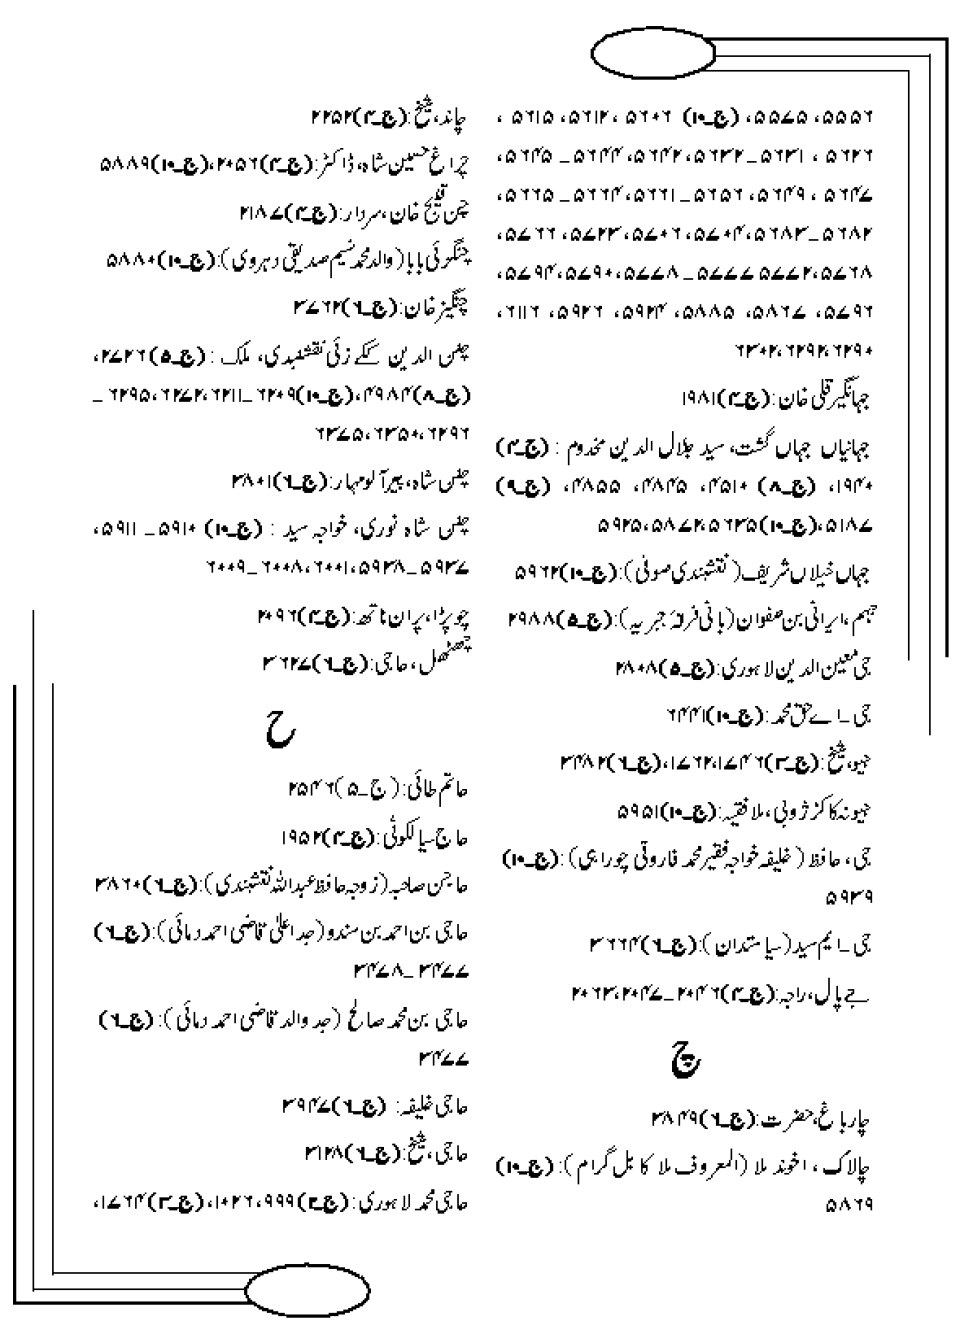 ۵۵۵۶، ۵۵۷۵، (ج۔۱۰) ۵۶۰۶، ۵۶۱۲، ۵۶۱۵،
۵۶۲۶ ، ۵۶۳۱۔۵۶۳۲، ۵۶۴۲، ۵۶۴۴۔۵۶۴۵،
۵۶۴۷، ۵۶۴۹، ۵۶۵۶۔۵۶۶۱، ۵۶۶۴۔۵۶۶۵،
۵۶۸۲۔۵۶۸۳، ۵۷۰۴، ۵۷۰۶، ۵۷۲۳، ۵۷۶۶،
۵۷۶۸، ۵۷۷۲، ۵۷۷۷۔۵۷۷۸، ۵۷۹۰، ۵۷۹۴،
۵۷۹۶، ۵۸۶۷، ۵۸۸۵، ۵۹۲۴، ۵۹۲۶، ۶۱۱۶،
۶۲۹۰، ۶۲۹۲، ۶۳۰۲
جہانگیر قلی خان:(ج۔۴)۱۹۸۱
جہانیاں جہاں گشت، سید جلال الدین مخدوم : (ج۔۴)
۱۹۴۰، (ج۔۸) ۴۵۱۰، ۴۸۴۵، ۴۸۵۵، (ج۔۹)
۵۱۸۷، (ج۔۱۰)۵۶۳۵، ۵۸۷۲، ۵۹۲۵
جہاں خیلاں شریف( نقشبندی صوفی):(ج۔۱۰)۵۹۶۲
جہم، ایرانی بن صفوان(بانی فرقۂ جبریہ):(ج۔۵)۲۹۸۸
جی معین الدین لاہوری:(ج۔۵)۲۸۰۸
جی۔اے حق محمد:(ج۔۱۰)۶۴۴۱
جیو، شیخ:(ج۔۳)۱۷۴۶، ۱۷۶۲، (ج۔۶)۳۴۸۲
جیوند کاکڑ ژوبی، ملا فقیہ:(ج۔۱۰)۵۹۵۱
جی، حافظ ( خلیفہ خواجہ فقیر محمد فاروقی چوراہی):(ج۔۱۰)
۵۹۳۹
جی۔ایم سید(سیاستدان):(ج۔۶)۳۶۶۴
جے پال، راجہ:(ج۔۴)۲۰۴۶۔۲۰۴۷، ۲۰۶۳
چ
چار باغ، حضرت:(ج۔۶)۳۸۴۹
چالاک، اخوند ملا (المعروف ملا کابل گرام):(ج۔۱۰)
۵۸۶۹
چاند، شیخ:(ج۔۴)۲۲۵۲
چراغ حسین شاہ، ڈاکٹر:(ج۔۴)۲۰۵۶، (ج۔۱۰)۵۸۸۹
چن قلیچ خان، سردار:(ج۔۴)۲۱۸۷
چنگوئی بابا(والد محمد نسیم صدیقی دہروی):(ج۔۱۰)۵۸۸۰
چنگیز خان:(ج۔۶)۳۷۶۲
چنن الدین ککے زئی نقشبندی، ملک : (ج۔۵)۲۷۲۶،
(ج۔۸)۴۹۸۴، (ج۔۱۰)۶۲۰۹۔۶۲۱۱، ۶۲۷۲، ۶۲۹۵۔
۶۲۹۶، ۶۳۵۰، ۶۳۷۵
چنن شاہ، پیر آلومہار:(ج۔۶)۳۸۰۱
چنن شاہ نوری، خواجہ سید : (ج۔۱۰) ۵۹۱۰۔۵۹۱۱،
۵۹۳۷۔۵۹۳۸، ۶۰۰۱، ۶۰۰۸۔۶۰۰۹
چوپڑا، پران ناتھ:(ج۔۴)۲۰۹۶
چھٹھل، حاجی:(ج۔۶)۳۶۲۷
ح
حاتم طائی:(ج۔۵)۲۵۴۶
حاج سیالکوٹی:(ج۔۴)۱۹۵۲
حاجن صاحبہ(زوجہ حافظ عبداللہ نقشبندی):(ج۔۶)۳۸۶۰
حاجی بن احمد بن سندو(جد اعلیٰ قاضی احمد دمائی):(ج۔۶)
۳۴۷۷۔۳۴۷۸
حاجی بن محمد صالح (جد والد قاضی احمد دمائی):(ج۔۶)
۳۴۷۷
حاجی خلیفہ: (ج۔۶)۳۹۴۷
حاجی، شیخ:(ج۔۶)۳۱۲۸
حاجی محمد لاہوری:(ج۔۲)۹۹۹، ۱۰۲۶، (ج۔۳)۱۷۶۴،